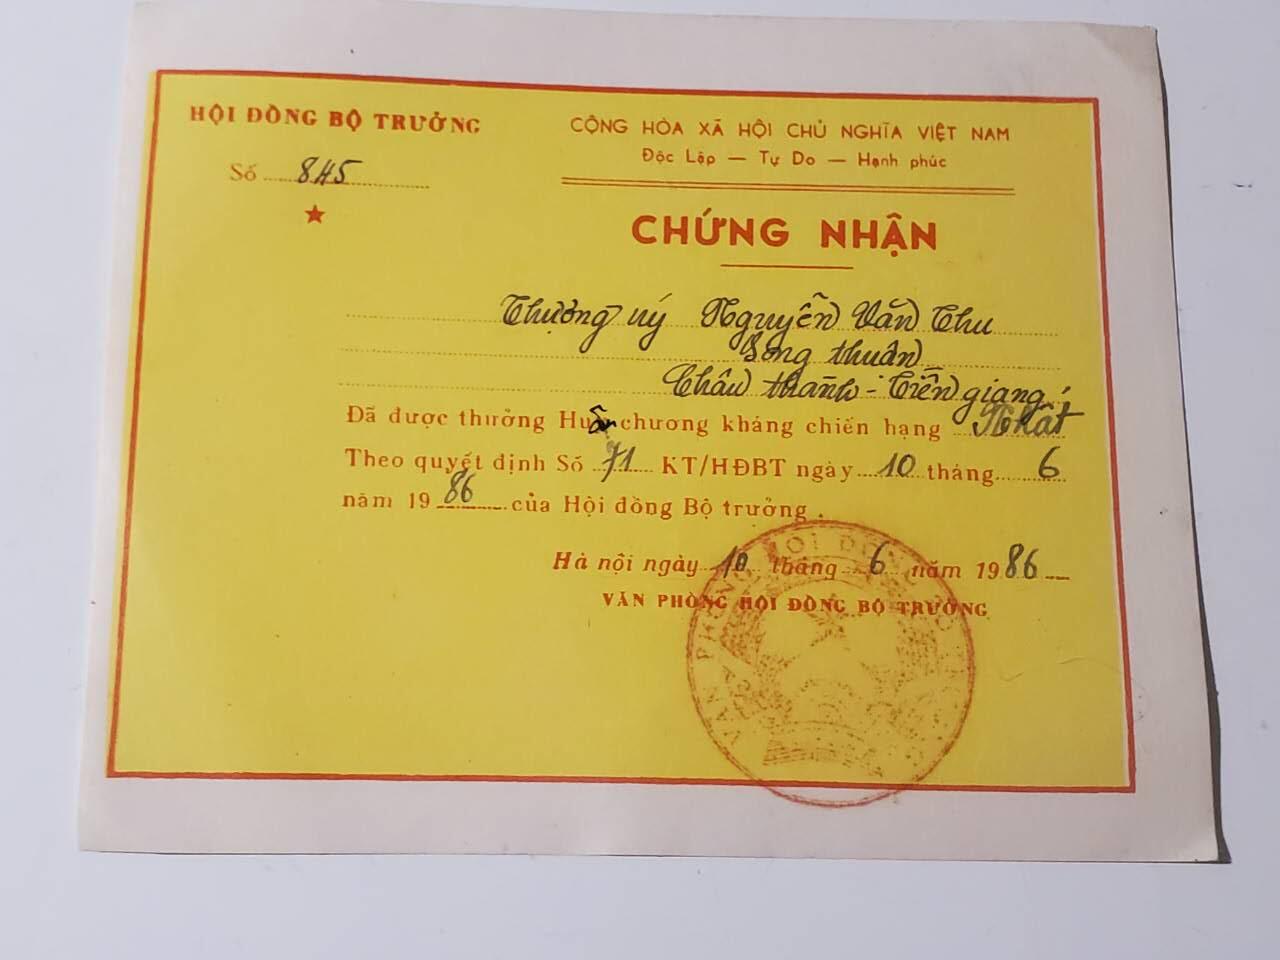 HỘI ĐỒNG BỘ TRƯỞNG
Số 845
CỘNG HÒA XÃ HỘI CHỦ NGHĨA VIỆT NAM
Độc Lập — Tự Do — Hạnh phúc
CHỨNG NHẬN
Thượng úy Nguyễn Văn Thu
Song thuận
Châu thành - Tiền giang
Đã được thưởng Huân chương kháng chiến hạng Nhất
Theo quyết định Số 71 KT/HĐBT ngày 10 tháng 6
năm 1986 của Hội đồng Bộ trưởng.
Hà nội ngày 10 tháng 6 năm 1986
VĂN PHÒNG HỘI ĐỒNG BỘ TRƯỞNG
VĂN PHÒNG HỘI ĐỒNG